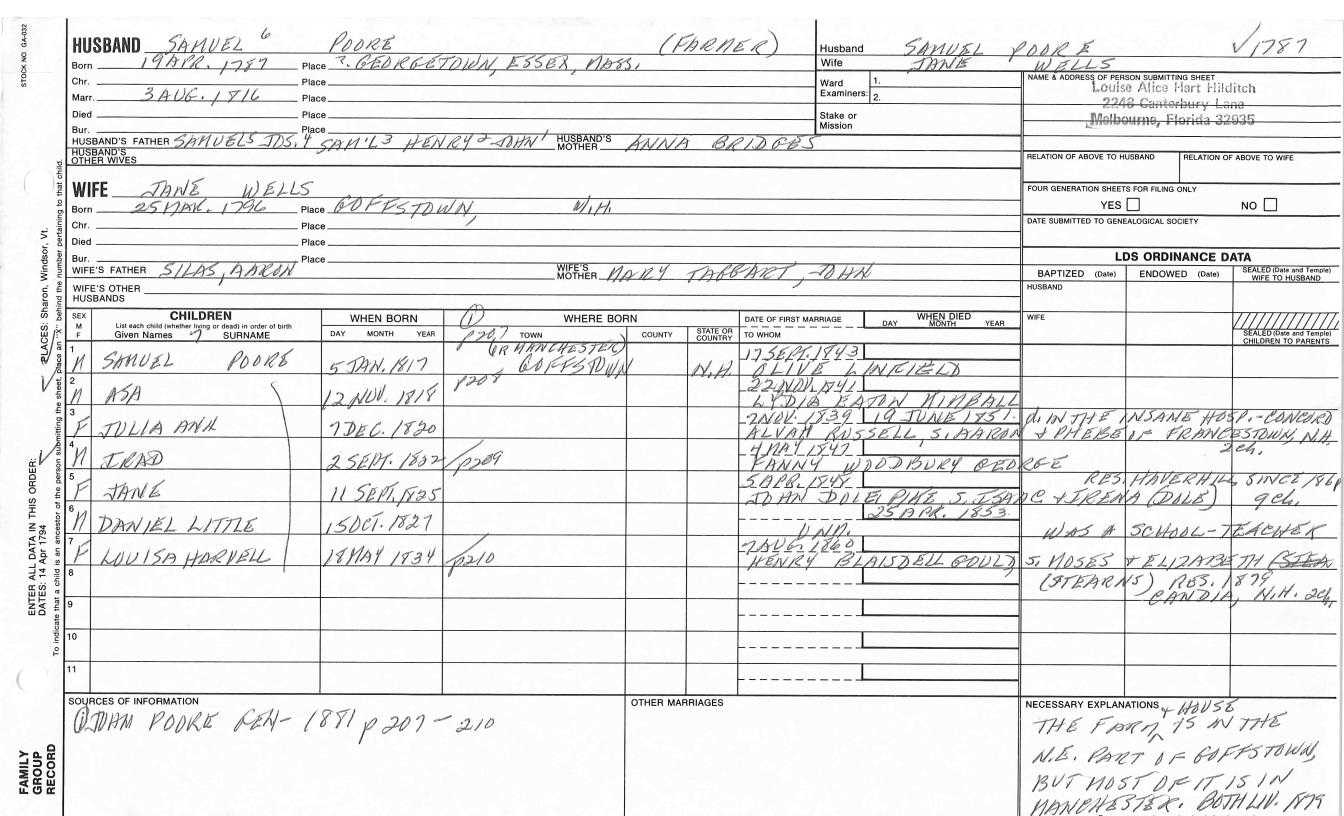 STOCK NO. GA-032
HUSBAND SAMUEL 6 POORE (FARMER)
Born 19 APR. 1787 Place ?. GEORGETOWN, ESSEX, MASS.
Chr. Place
Marr. 3 AUG. 1816 Place
Died Place
Bur. Place
HUSBAND'S FATHER SAMUEL5 JDS. 4 SAM'L3 HENRY2 JOHN1 HUSBAND'S MOTHER ANNA BRIDGES
HUSBAND'S OTHER WIVES
WIFE JANE WELLS
Born 25 MAR. 1796 Place GOFFSTOWN, N.H.
Chr. Place
Died Place
Bur. Place
WIFE'S FATHER SILAS, AARON WIFE'S MOTHER MARY TAGGART, JOHN
WIFE'S OTHER HUSBANDS
Husband SAMUEL POORE √1787
Wife JANE WELLS
Ward Examiners: 1.
2.
Stake or Mission
NAME & ADDRESS OF PERSON SUBMITTING SHEET
Louise Alice Hart Hilditch
2248 Canterbury Lane
Melbourne, Florida 32935
RELATION OF ABOVE TO HUSBAND RELATION OF ABOVE TO WIFE
FOUR GENERATION SHEETS FOR FILING ONLY
YES NO
DATE SUBMITTED TO GENEALOGICAL SOCIETY
LDS ORDINANCE DATA
BAPTIZED (Date) ENDOWED (Date) SEALED (Date and Temple) WIFE TO HUSBAND
HUSBAND
WIFE
SEALED (Date and Temple) CHILDREN TO PARENTS
SEX M F
CHILDREN
List each child (whether living or dead) in order of birth
Given Names 7 SURNAME
WHEN BORN
DAY MONTH YEAR
① WHERE BORN
p207 TOWN COUNTY STATE OR COUNTRY
DATE OF FIRST MARRIAGE
TO WHOM
WHEN DIED
DAY MONTH YEAR
1 M SAMUEL POORE 5 JAN. 1817 (OR MANCHESTER) GOFFSTOWN N.H. 17 SEPT. 1843
OLIVE LINFIELD
2 M ASA 12 NOV. 1818 p208 22 NOV. 1841
LYDIA EATON KIMBALL
3 F JULIA ANN 7 DEC. 1820 7 NOV. 1839 19 JUNE 1851. d. IN THE INSANE HOSP.-CONCORD
ALVAH RUSSELL, S. AARON & PHEBE OF FRANCESTOWN, N.H.
2ch.
4 M IRAD 2 SEPT. 1822 p209 4 MAY 1847
FANNY WOODBURY GEORGE
5 F JANE 11 SEPT. 1825 5 APR. 1848. RES. HAVERHILL SINCE 1861
JOHN DOLE PIKE, S. ISAAC & IRENA (DOLE) 9ch.
6 M DANIEL LITTLE 15 OCT. 1827 25 APR. 1853.
UNM. WAS A SCHOOL-TEACHER
7 F LOUISA HARVELL 18 MAY 1834 p210 7 AUG. 1860
HENRY BLAISDELL GOULD, S. MOSES & ELIZABETH
(STEARNS) RES. 1879
CANDIA, N.H. 2ch.
8
9
10
11
SOURCES OF INFORMATION
① JOHN POORE GEN- 1881 p207-210
OTHER MARRIAGES
NECESSARY EXPLANATIONS
THE FARM & HOUSE IS IN THE
N.E. PART OF GOFFSTOWN,
BUT MOST OF IT IS IN
MANCHESTER. BOTH LIV. 1879
FAMILY GROUP RECORD
ENTER ALL DATA IN THIS ORDER:
DATES: 14 Apr 1794
PLACES: Sharon, Windsor, Vt.
To indicate that a child is an ancestor of the person submitting the sheet, place an "X" behind the number pertaining to that child.